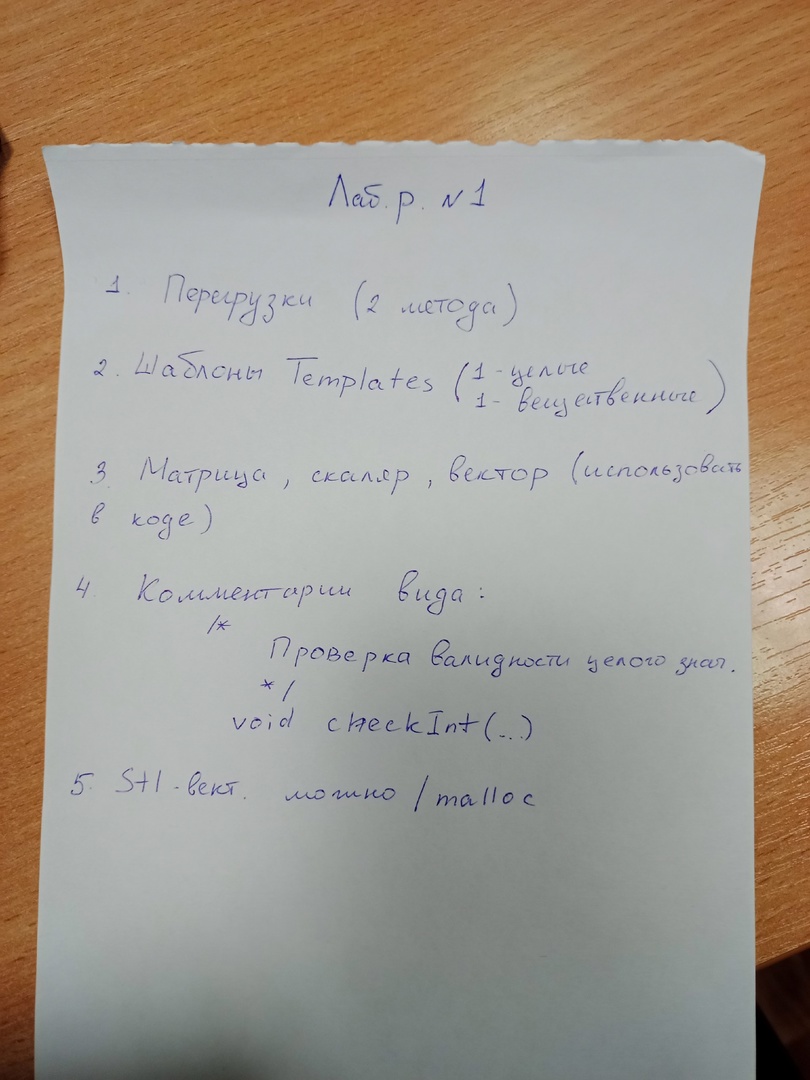 Лаб. р. N 1
1. Перегрузки (2 метода)
2. Шаблоны Templates (1 - целые
1 - вещественные)
3. Матрица, скаляр, вектор (использовать
в коде)
4. Комментарии вида:
/*
Проверка валидности целого знач.
*/
void checkInt(...)
5. Stl - вект. можно / malloc